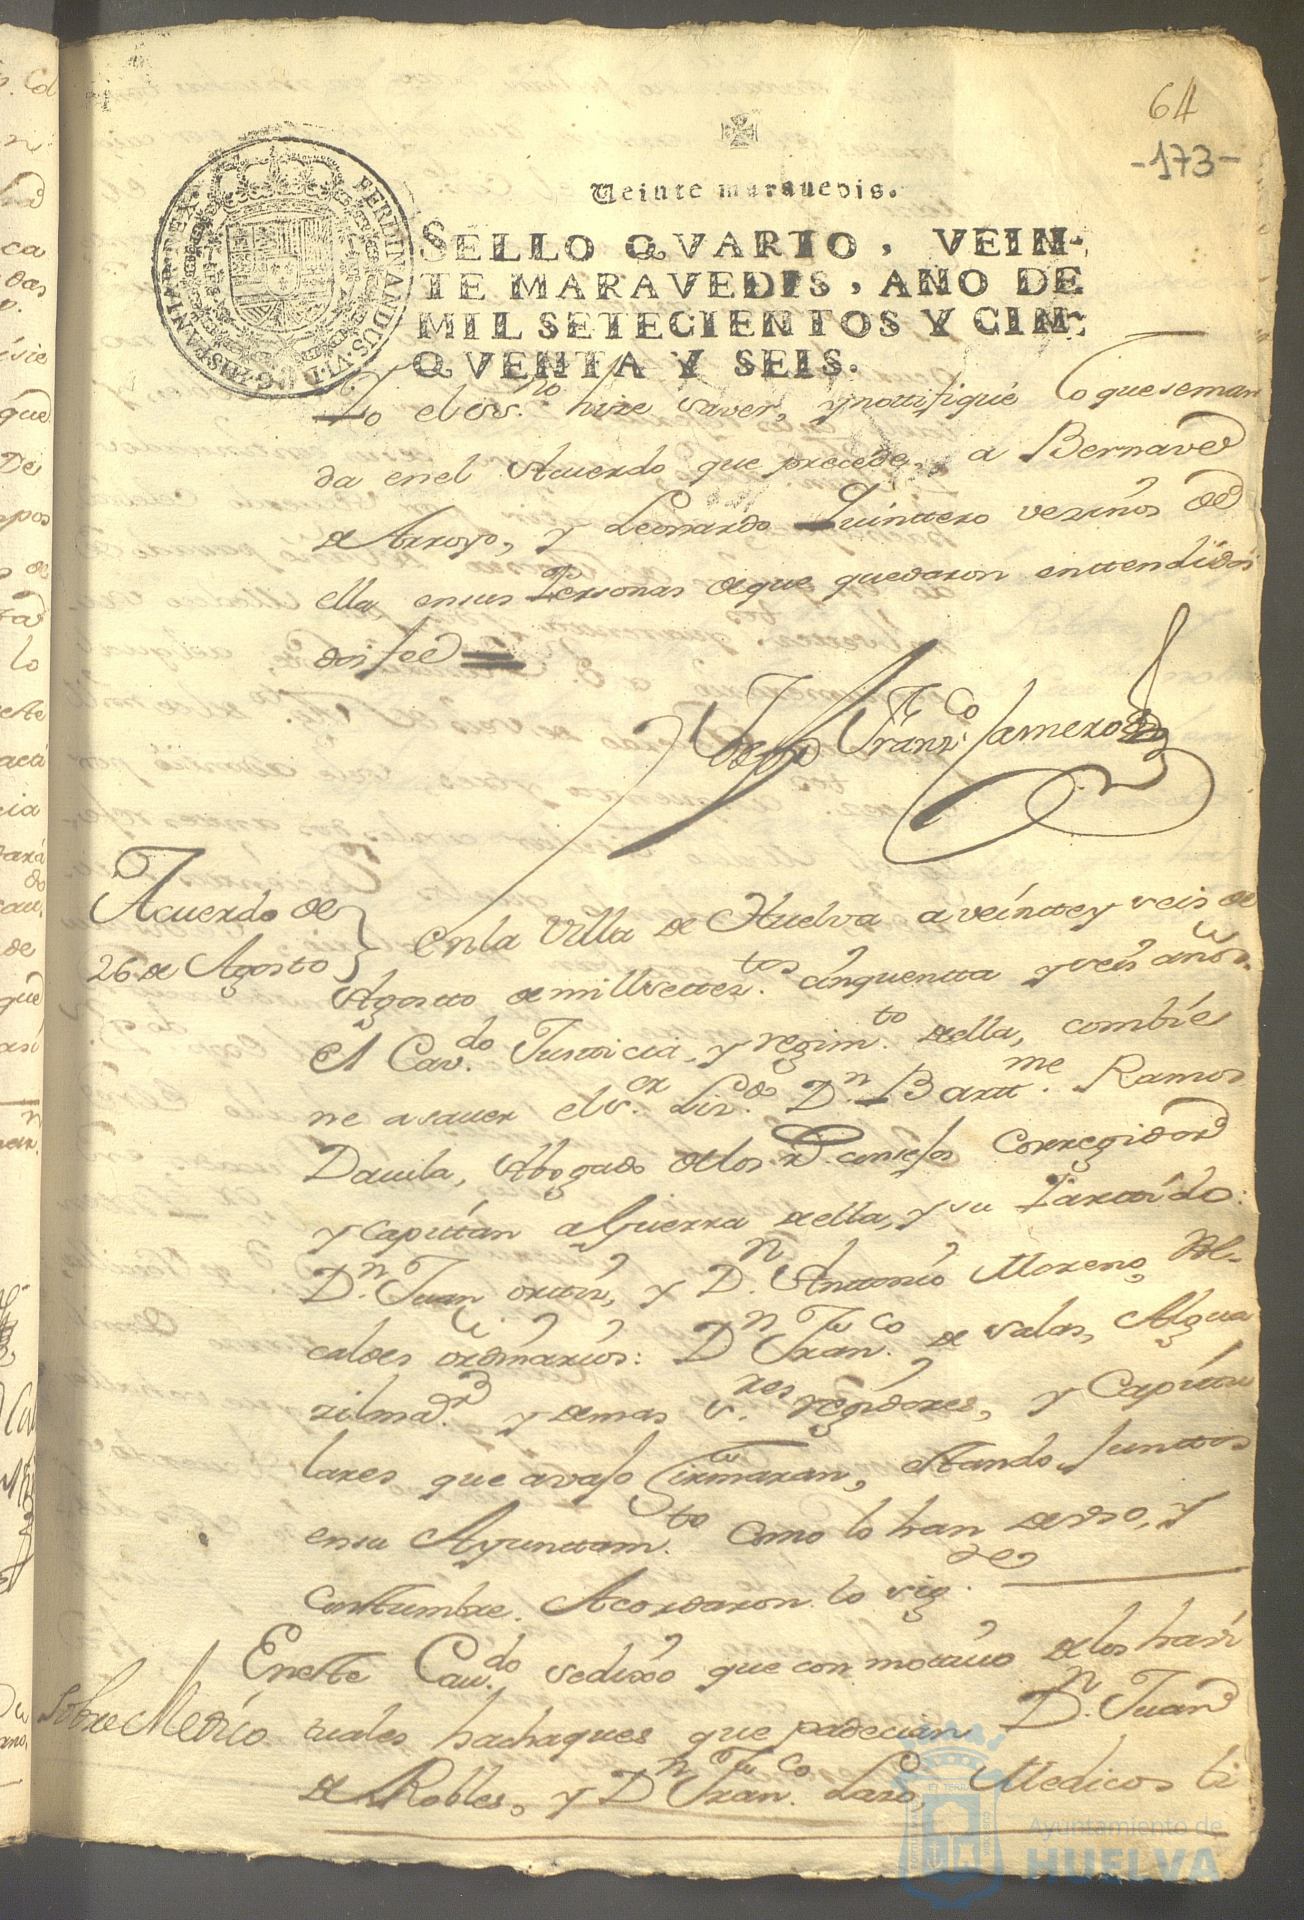 64
-173-
Veinte maravedis.
SELLO QVARTO, VEIN-
TE MARAVEDIS, AÑO DE
MIL SETECIENTOS Y CIN-
QVENTA Y SEIS.
FERDINANDUS·VI·D·G·HISPANIAR·REX
Yo el ess.no hize saver, y nottifiqué lo que se man
da en el Acuerdo que precede, a Bernave
de Arroyo, y Leonardo Quinttero vezinos de
ella, en sus Personas de que quedaron enttendidos
doi fee
Diego Franz.co Camero
Acuerdo de
26 de Agosto
En la Villa de Huelva a veintte y seis de
Agosto de mill settez.tos cinquentta y seis años.
El Cav.do Justticia, y regim.to de ella, combie
ne a saver el s.or Liz.do D.n Bartt.me Ramos
Davila, Abogado de los R. consejos Corregidor
y Capittan a Guerra de ella, y su Parttido:
D.n Juan orttiz, y D.n Anttonio Moreno Al-
caldes ordinarios: D.n Fran.co de Salas, Algua
zil ma.r y demas s.res regidores, y Capittu
lares que avajo firmaran, estando Junttos
en su Ayunttam.to como lo han de uso, y
costtumbre. Acordaron lo sig.te
Sobre Medico
En estte Cav.do se dixo que con mottivo de los havi
tuales hachaques que padecian D.n Juan
de Robles, y D.n Fran.co Lazo, Medicos ti
EI TERRAE
Ayuntamiento de
HUELVA